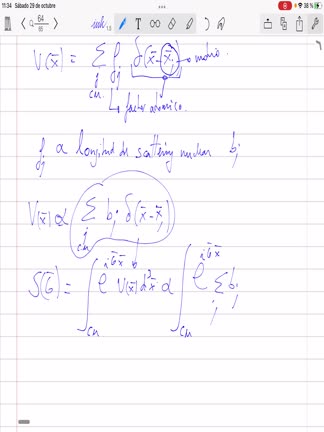 11:34 Sábado 29 de octubre 38 %
64
65
V(x̄) = Σ f_j δ(x̄-x̄_j) → núcleo.
j
cu.
↳ factor atómico.
f_j α longitud de scattering nuclear b_j
V(x̄) α Σ b_j · δ(x̄-x̄_j)
j
cu
S(Ḡ) = ∫_cu e^{iḠx̄} V(x̄) d³x̄ α ∫_cu e^{iḠx̄} Σ_j b_j